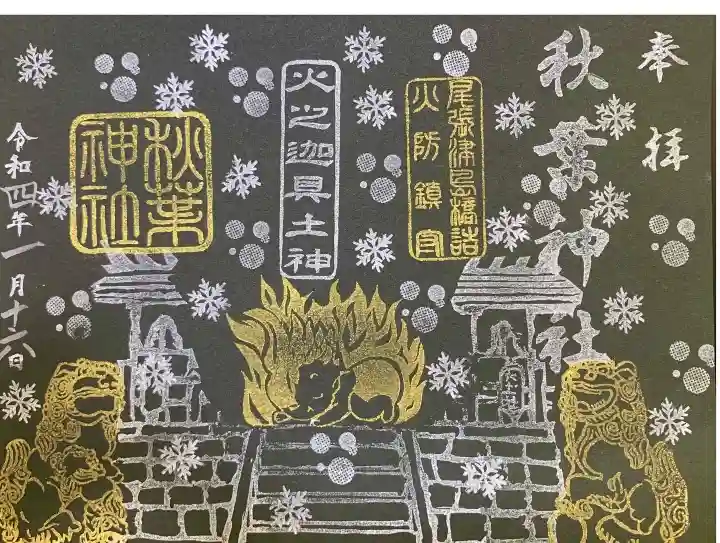 奉拝
秋葉神社
尾張津島橋詰
火防鎮守
火之迦具土神
秋葉
神社
令和四年一月十六日